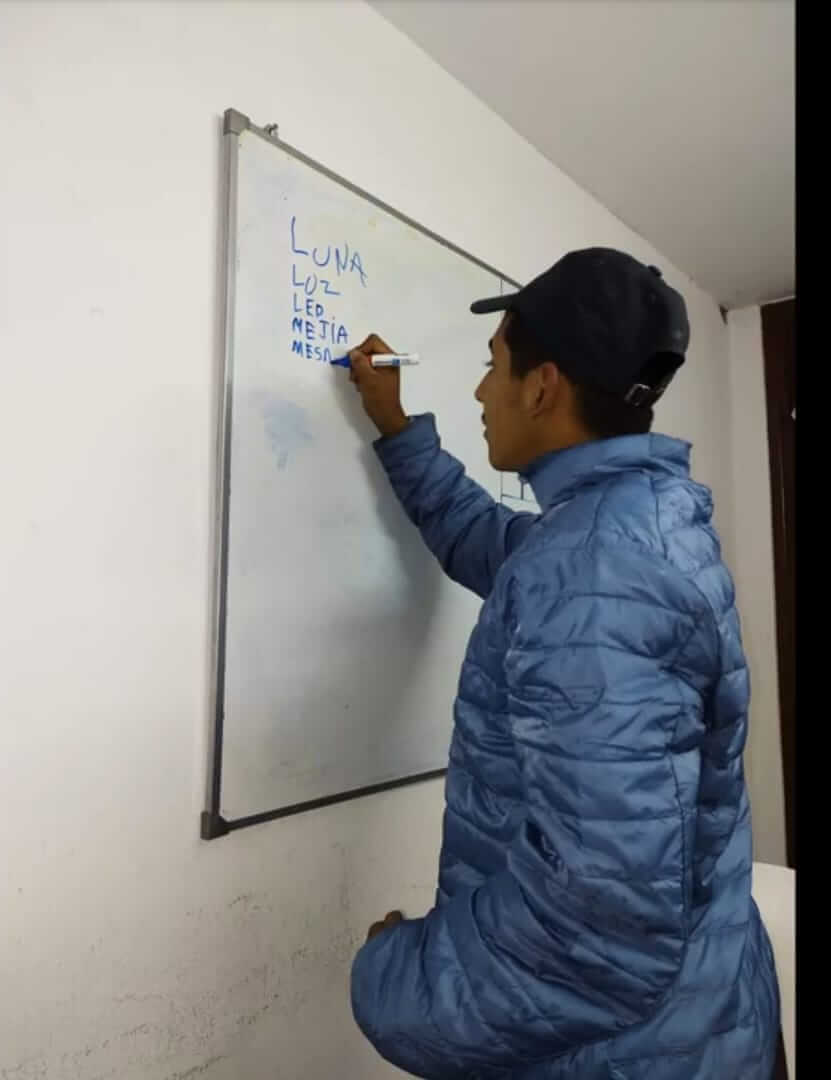 LUNA
LUZ
LED
MEJÍA
MESA